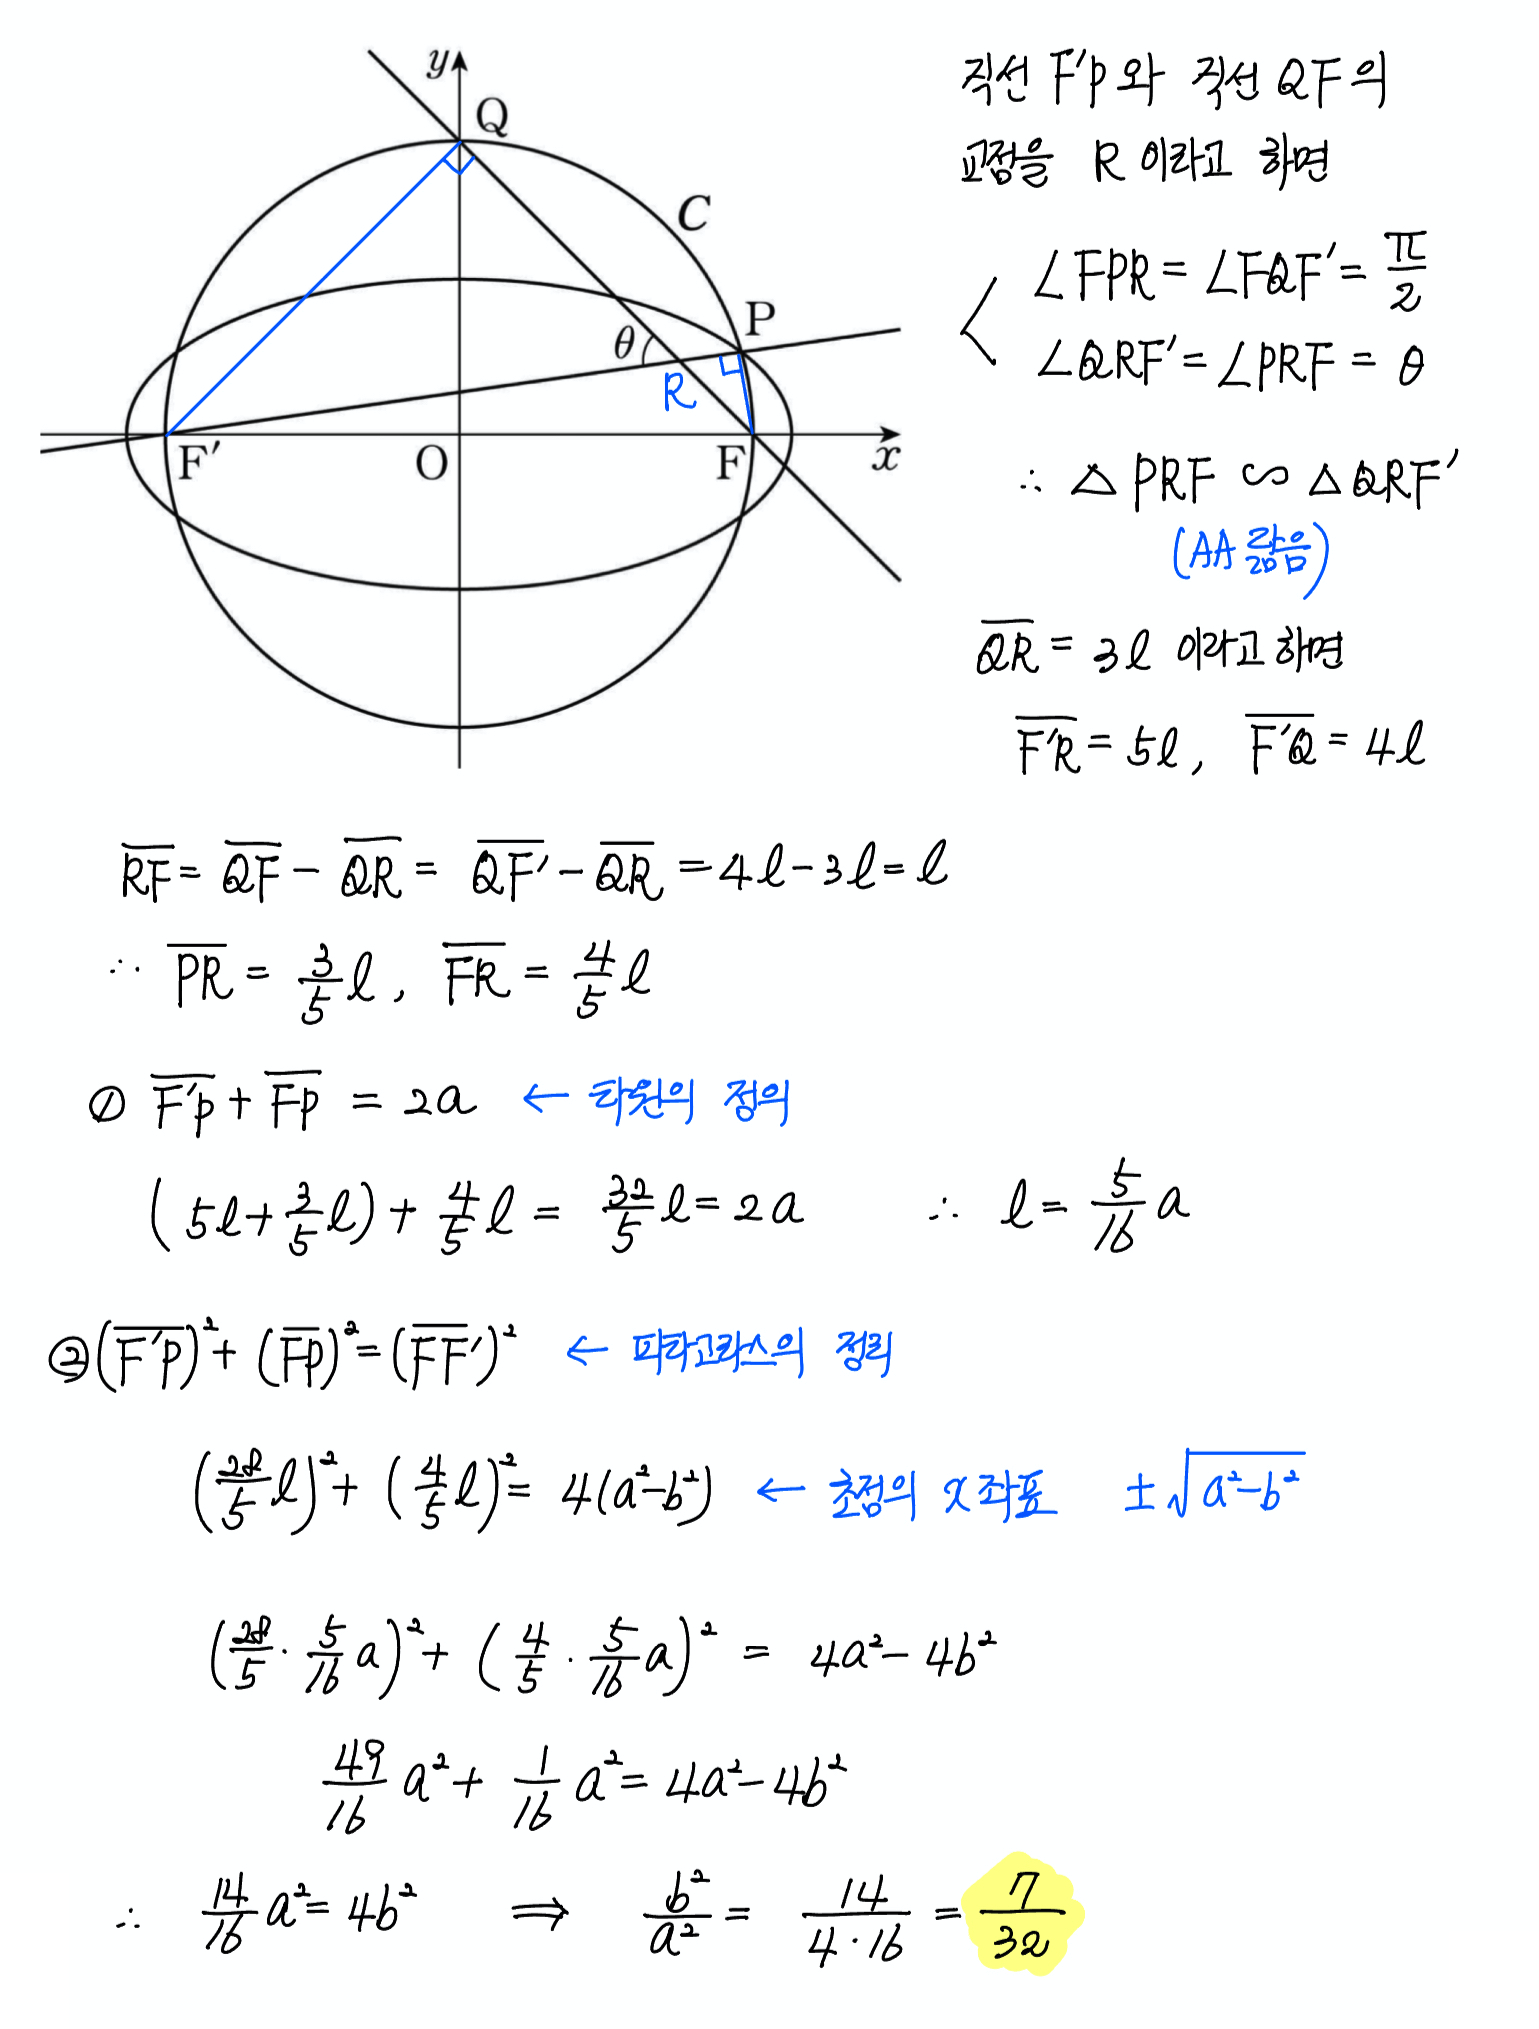 y
Q
C
P
θ
R
F′
O
F
x
직선 F′P와 직선 QF의
교점을 R이라고 하면
∠FPR = ∠FQF′ = π/2
∠QRF′ = ∠PRF = θ
∴ △PRF ∽ △QRF′
(AA 닮음)
QR = 3l 이라고 하면
F′R = 5l, F′Q = 4l
RF = QF - QR = QF′ - QR = 4l - 3l = l
∴ PR = 3/5 l, FR = 4/5 l
① F′P + FP = 2a ← 타원의 정의
(5l + 3/5 l) + 4/5 l = 32/5 l = 2a ∴ l = 5/16 a
② (F′P)² + (FP)² = (FF′)² ← 피타고라스의 정리
(28/5 l)² + (4/5 l)² = 4(a²-b²) ← 초점의 x좌표 ±√(a²-b²)
(28/5 · 5/16 a)² + (4/5 · 5/16 a)² = 4a² - 4b²
49/16 a² + 1/16 a² = 4a² - 4b²
∴ 14/16 a² = 4b² ⇒ b²/a² = 14/(4·16) = 7/32